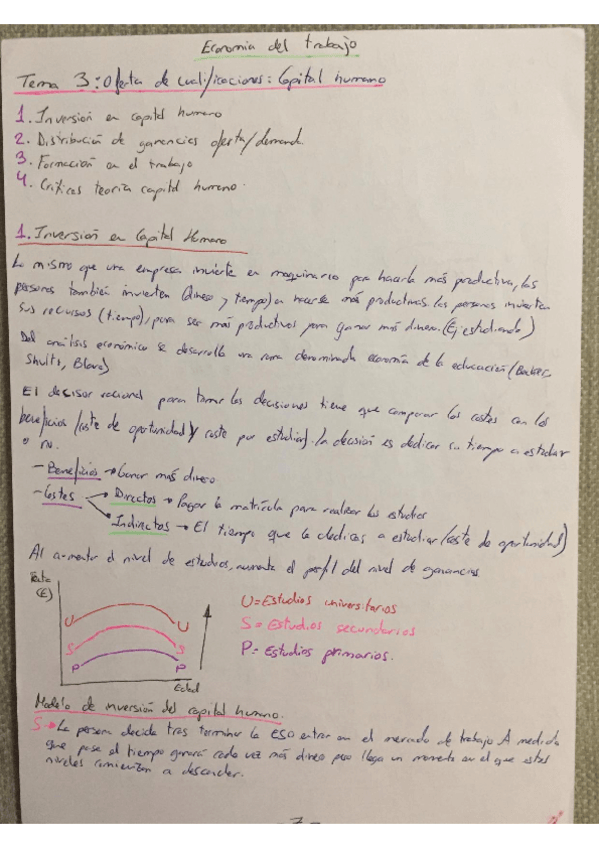 Economía del trabajo
Tema 3: Oferta de cualificaciones: Capital humano
1. Inversión en capital humano
2. Distribución de ganancias oferta/demanda.
3. Formación en el trabajo
4. Críticas teoría capital humano.
1. Inversión en Capital Humano
Lo mismo que una empresa invierte en maquinaria para hacerla más productiva, las
personas también invierten (dinero y tiempo) en hacerse más productivas. Las personas invierten
sus recursos (tiempo), para ser más productivos para ganar más dinero. (Ej: estudiando)
Del análisis económico se desarrolla una rama denominada economía de la educación (Becker,
Shultz, Blau)
El decisor racional para tomar las decisiones tiene que comparar los costes con los
beneficios (coste de oportunidad y coste por estudiar). La decisión es dedicar su tiempo a estudiar
o no.
- Beneficios → Ganar más dinero
- Costes → Directos → Pagar la matrícula para realizar los estudios
→ Indirectos → El tiempo que le dedicas a estudiar (coste de oportunidad)
Al aumentar el nivel de estudios, aumenta el perfil del nivel de ganancias.
Renta
(E)
U U
S S
P P
Edad
U = Estudios universitarios
S = Estudios secundarios
P = Estudios primarios.
Modelo de inversión del capital humano.
S → La persona decide tras terminar la ESO entrar en el mercado de trabajo. A medida
que pase el tiempo ganará cada vez más dinero pero llega un momento en el que estos
niveles comienzan a descender.